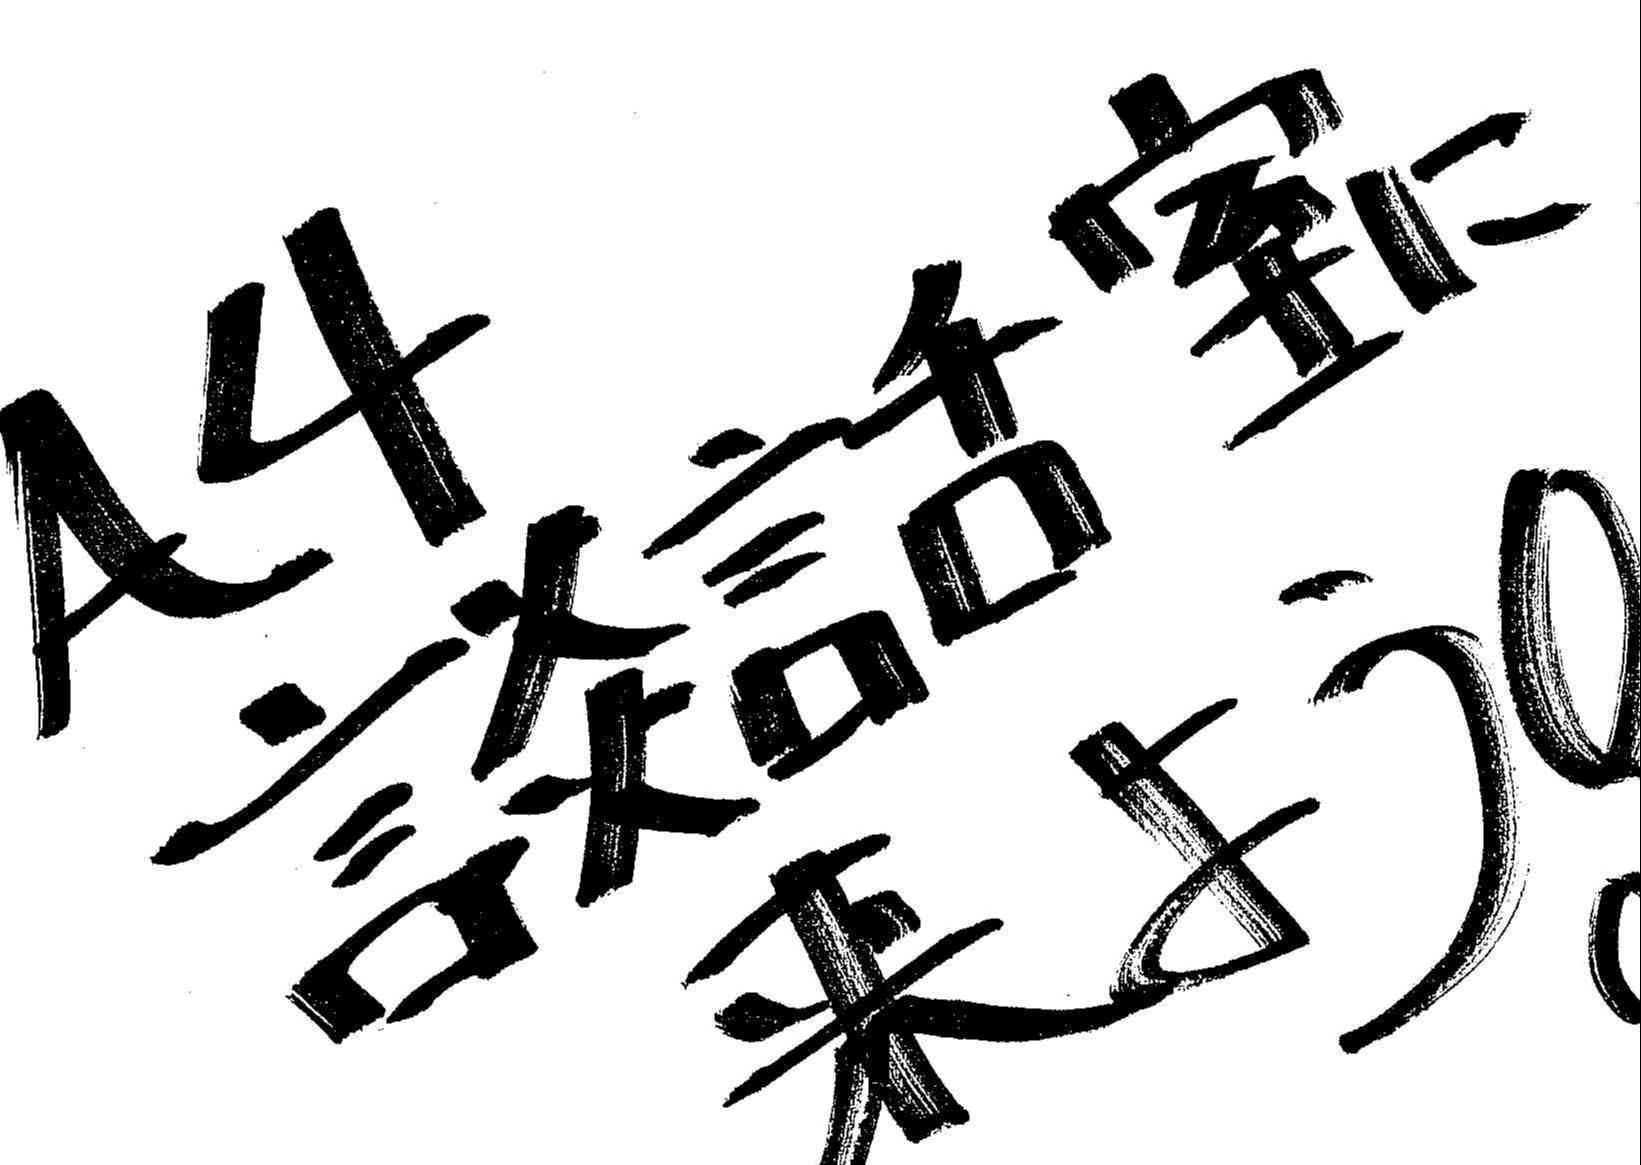 A4
談話室に
来よう!